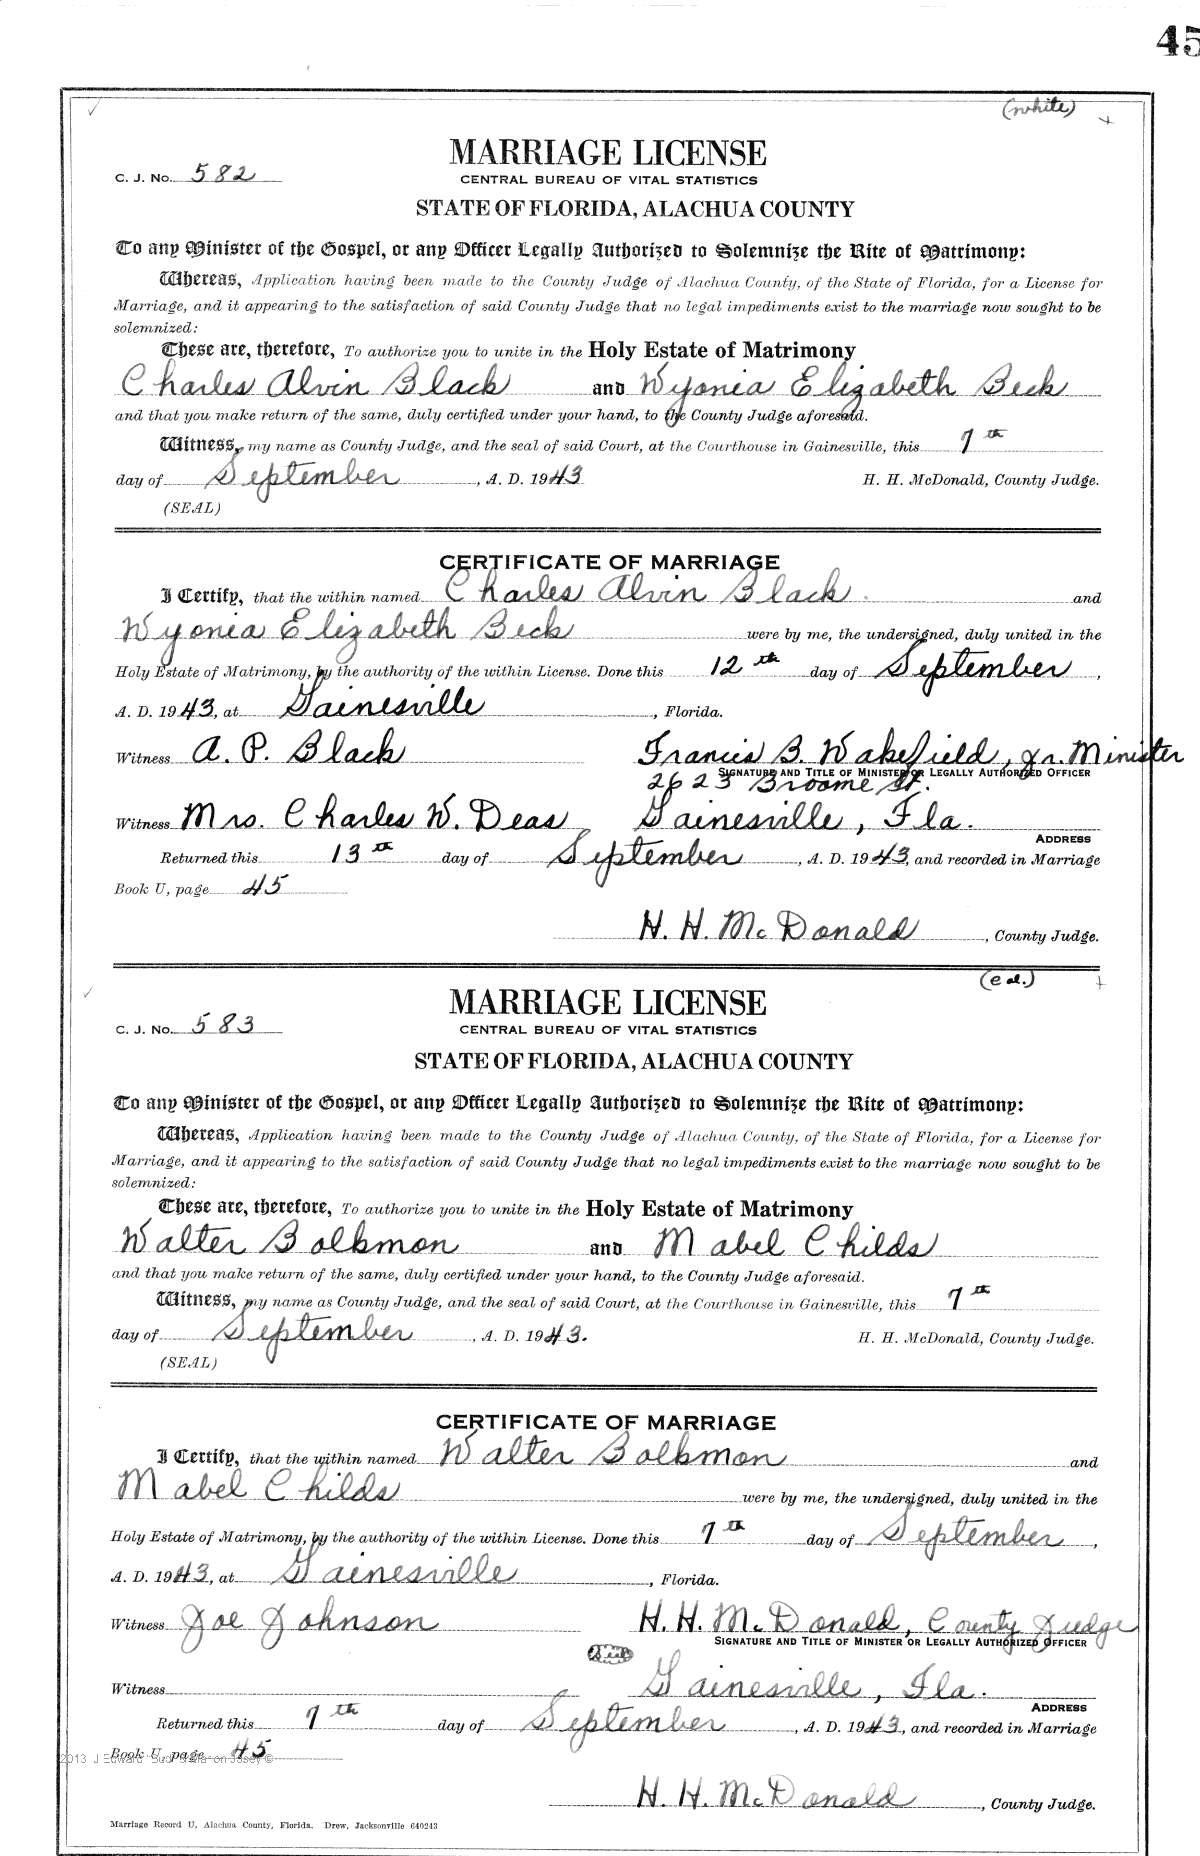 45
(white)
MARRIAGE LICENSE
C. J. No. 582
CENTRAL BUREAU OF VITAL STATISTICS
STATE OF FLORIDA, ALACHUA COUNTY
To any Minister of the Gospel, or any Officer Legally Authorized to Solemnize the Rite of Matrimony:
Whereas, Application having been made to the County Judge of Alachua County, of the State of Florida, for a License for
Marriage, and it appearing to the satisfaction of said County Judge that no legal impediments exist to the marriage now sought to be
solemnized:
These are, therefore, To authorize you to unite in the Holy Estate of Matrimony
Charles Alvin Black and Wyonia Elizabeth Beck
and that you make return of the same, duly certified under your hand, to the County Judge aforesaid.
Witness, my name as County Judge, and the seal of said Court, at the Courthouse in Gainesville, this 7th
day of September, A. D. 1943 H. H. McDonald, County Judge.
(SEAL)
CERTIFICATE OF MARRIAGE
I Certify, that the within named Charles Alvin Black and
Wyonia Elizabeth Beck were by me, the undersigned, duly united in the
Holy Estate of Matrimony, by the authority of the within License. Done this 12th day of September,
A. D. 1943, at Gainesville, Florida.
Witness A. P. Black Francis B. Wakefield, Jr. Minister
SIGNATURE AND TITLE OF MINISTER OR LEGALLY AUTHORIZED OFFICER
2623 Broome St.
Witness Mrs. Charles W. Deas Gainesville, Fla.
ADDRESS
Returned this 13th day of September, A. D. 1943, and recorded in Marriage
Book U, page 45
H. H. McDonald, County Judge.
(col.)
MARRIAGE LICENSE
C. J. No. 583
CENTRAL BUREAU OF VITAL STATISTICS
STATE OF FLORIDA, ALACHUA COUNTY
To any Minister of the Gospel, or any Officer Legally Authorized to Solemnize the Rite of Matrimony:
Whereas, Application having been made to the County Judge of Alachua County, of the State of Florida, for a License for
Marriage, and it appearing to the satisfaction of said County Judge that no legal impediments exist to the marriage now sought to be
solemnized:
These are, therefore, To authorize you to unite in the Holy Estate of Matrimony
Walter Bolkmon and Mabel Childs
and that you make return of the same, duly certified under your hand, to the County Judge aforesaid.
Witness, my name as County Judge, and the seal of said Court, at the Courthouse in Gainesville, this 7th
day of September, A. D. 1943. H. H. McDonald, County Judge.
(SEAL)
CERTIFICATE OF MARRIAGE
I Certify, that the within named Walter Bolkmon and
Mabel Childs were by me, the undersigned, duly united in the
Holy Estate of Matrimony, by the authority of the within License. Done this 7th day of September,
A. D. 1943, at Gainesville, Florida.
Witness Joe Johnson H. H. McDonald, County Judge
SIGNATURE AND TITLE OF MINISTER OR LEGALLY AUTHORIZED OFFICER
(Seal)
Witness Gainesville, Fla.
ADDRESS
Returned this 7th day of September, A. D. 1943, and recorded in Marriage
Book U, page 45
H. H. McDonald, County Judge.
Marriage Record U, Alachua County, Florida. Drew, Jacksonville 640243